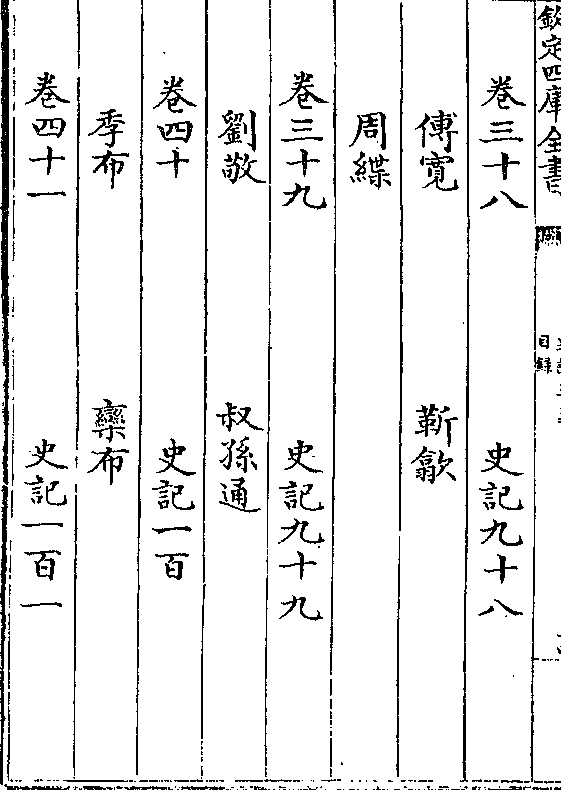 欽定四庫全書
目録
卷三十八 史記九十八
傅寛 靳歙
周緤
卷三十九 史記九十九
劉敬 叔孫通
卷四十 史記一百
季布 欒布
卷四十一 史記一百一